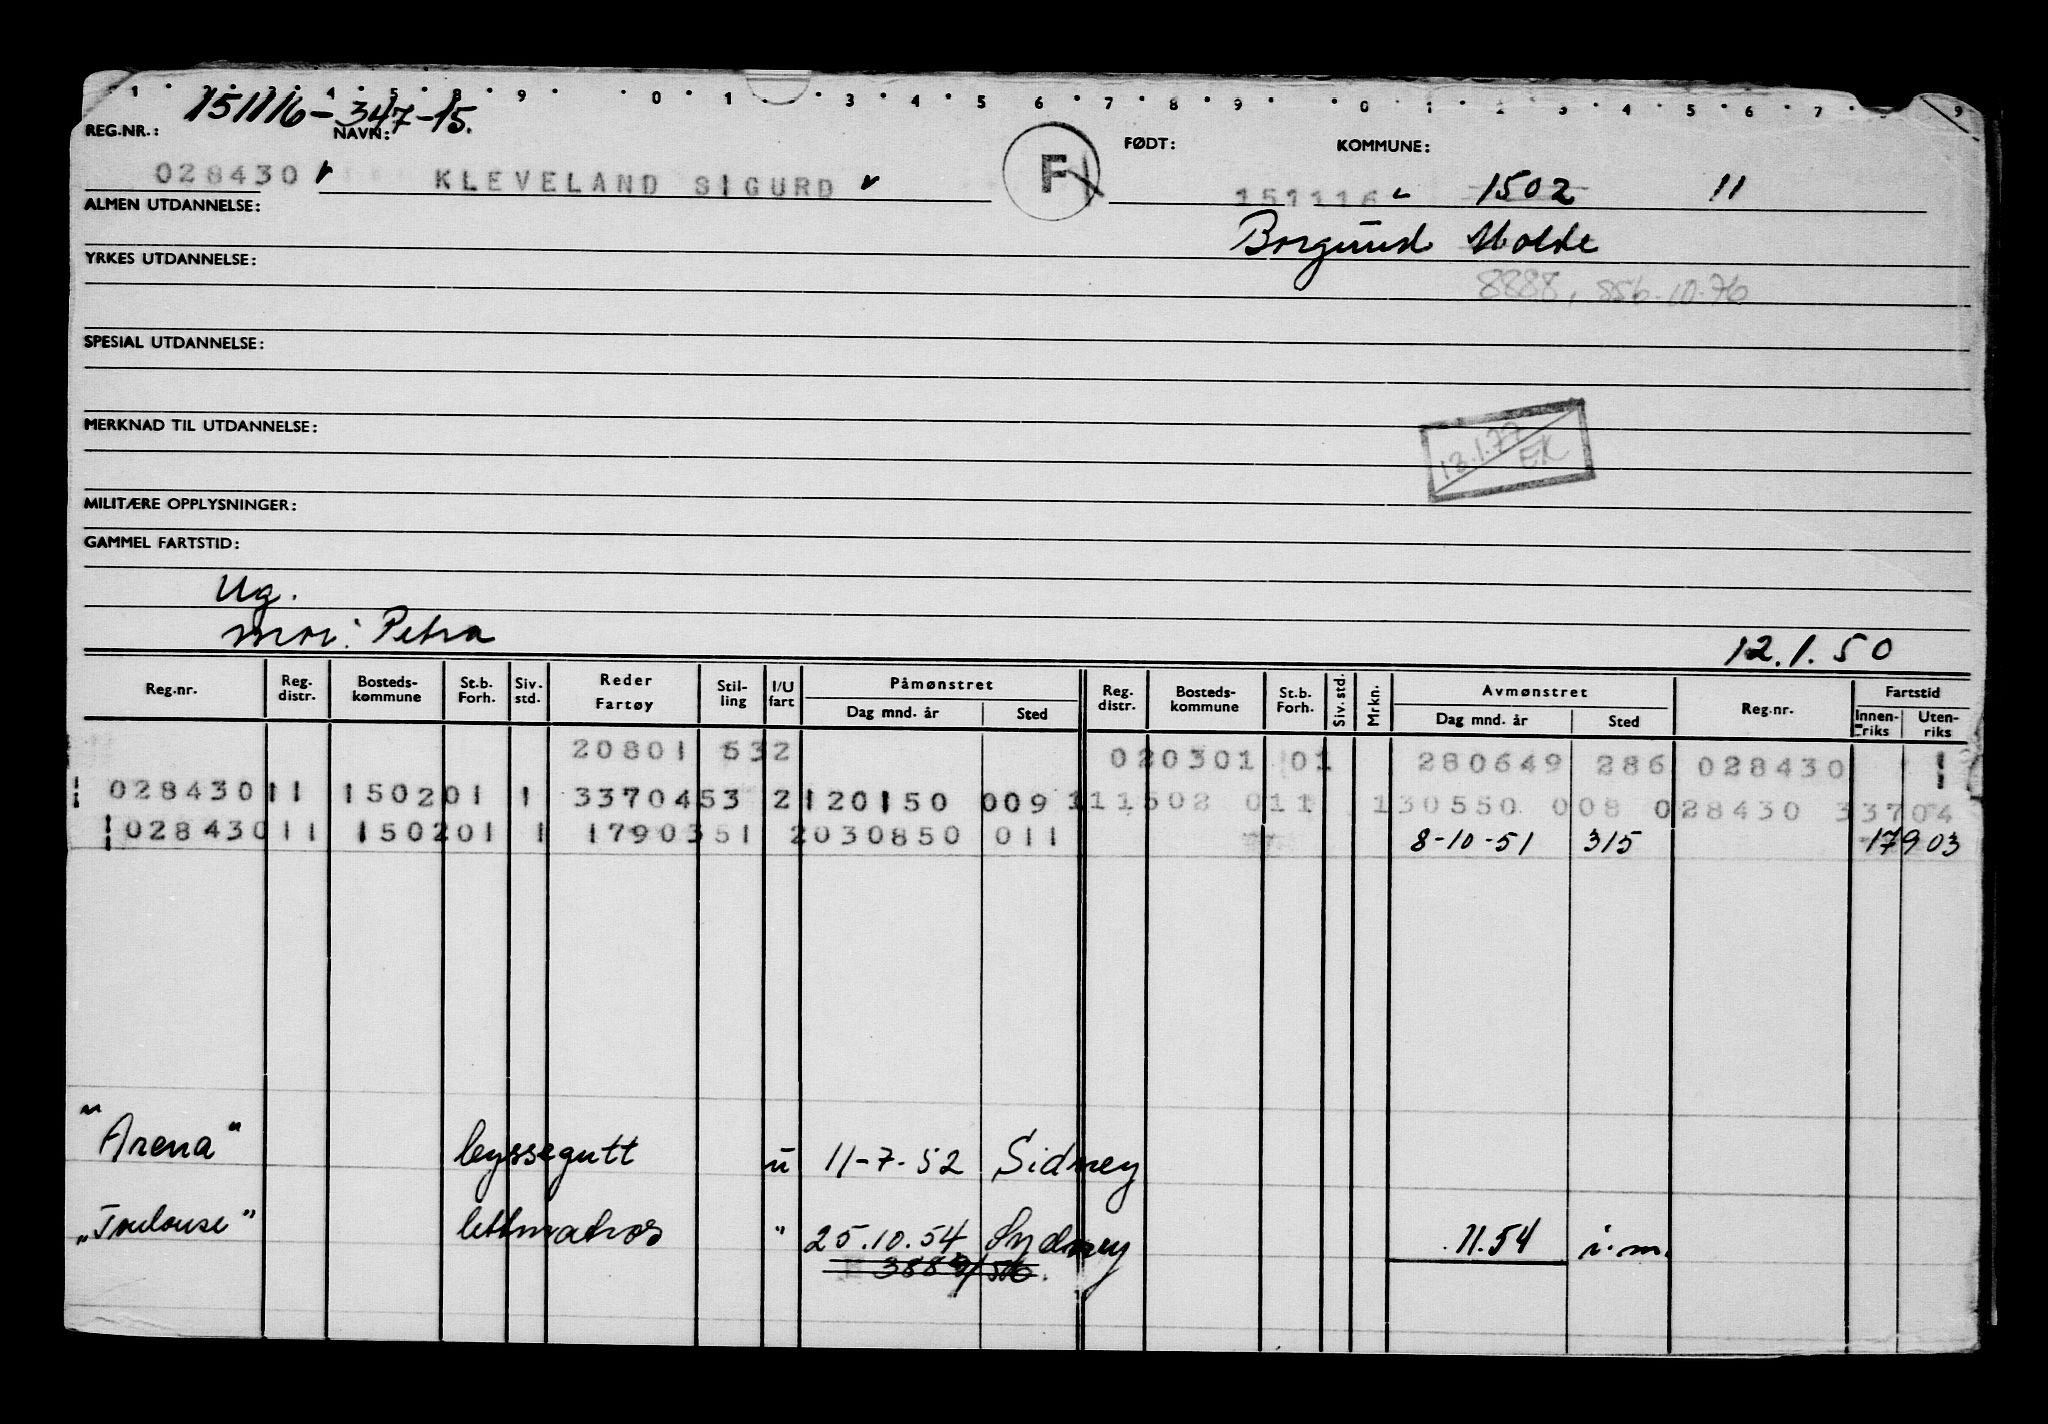 1 3 4 5 8 9 0 1 3 4 5 6 7 8 9 0 1 2 3 4 5 6 7 9
151116-347-15.
REG.NR.: NAVN: F FØDT: KOMMUNE:
028430 KLEVELAND SIGURD 151116 1502 11
ALMEN UTDANNELSE:
Borgund Molde
YRKES UTDANNELSE:
8888, 856.10.76
SPESIAL UTDANNELSE:
MERKNAD TIL UTDANNELSE:
12.1.77 EK
MILITÆRE OPPLYSNINGER:
GAMMEL FARTSTID:
Ug.
mor: Petra 12.1.50
Reg.nr. Reg. distr. Bosteds-kommune St.b. Forh. Siv. std. Reder Fartøy Stil-ling I/U fart Påmønstret Dag mnd. år Sted Reg. distr. Bosteds-kommune St.b. Forh. Siv. std. Mrkn. Avmønstret Dag mnd. år Sted Reg.nr. Fartstid Innen-riks Uten-riks
20801 532 020301 01 280649 286 028430 1
028430 11 150201 1 33704 53 2 120150 009 1 11502 011 130550 008 028430 33704
028430 11 150201 1 17903 51 2 030850 011 8-10-51 315 17903
"Arena" byssegutt u 11-7-52 Sidney
"Toulouse" lettmatros " 25.10.54 Sydney .11.54 i.m.